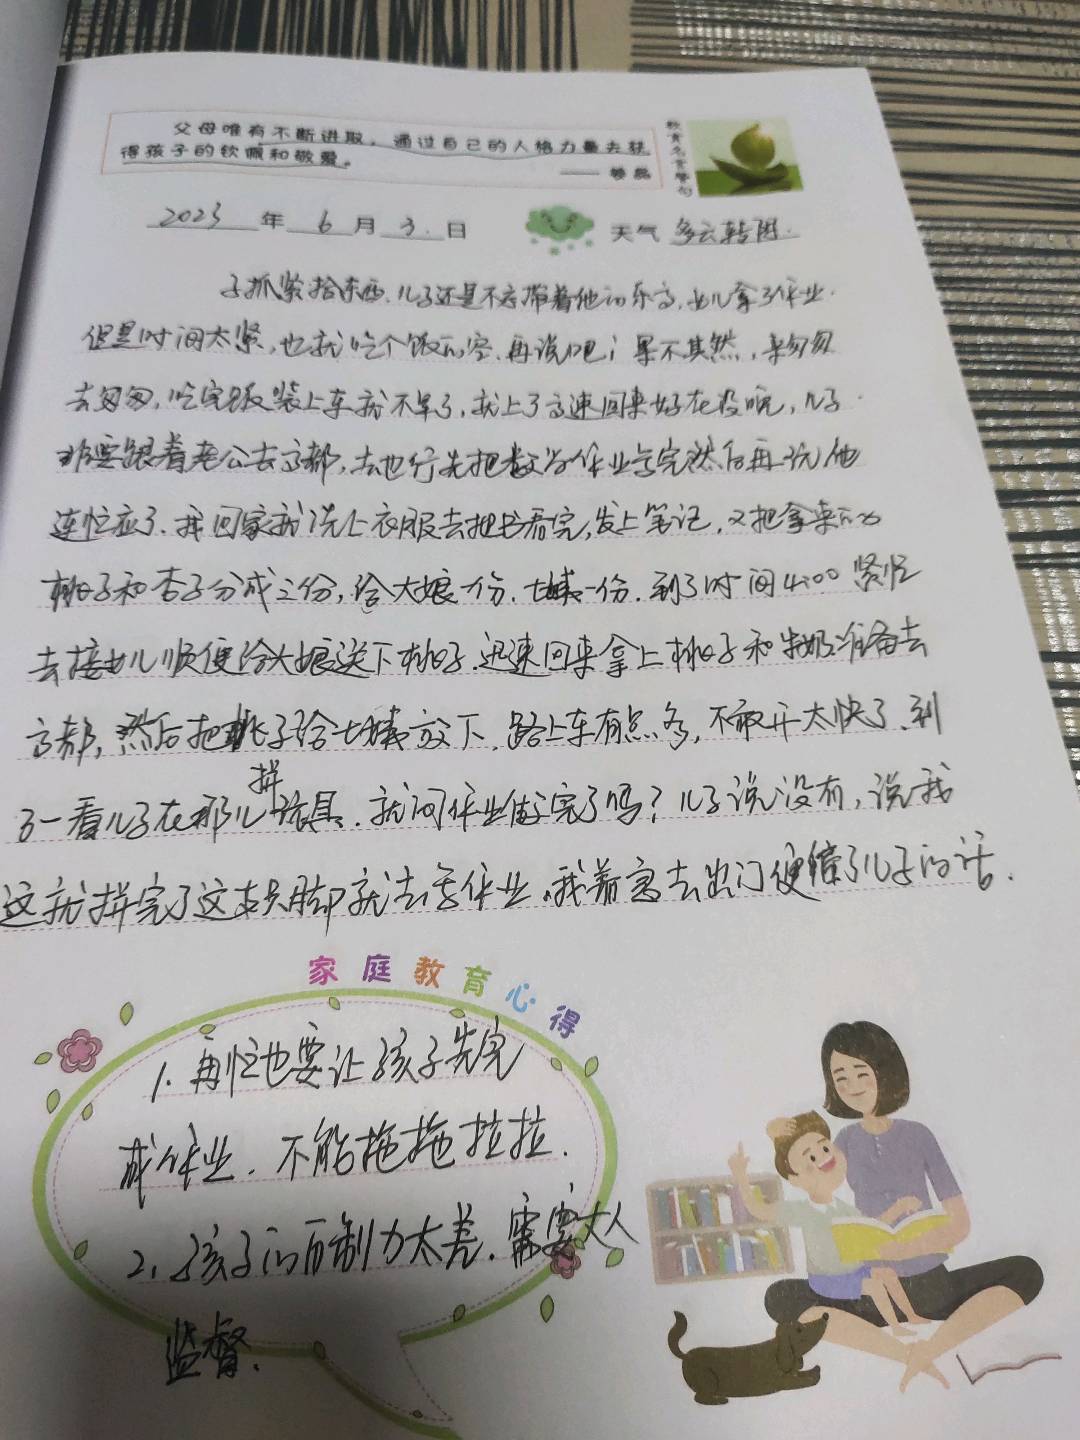 父母唯有不断进取，通过自己的人格力量去获
得孩子的钦佩和敬爱。
教育名言警句
2023 年 6 月 3 日
天气 多云转阴.
子抓紧拾东西.儿子还是不忘带着他的乐高,女儿拿了作业.
但是时间太紧,也就吃个饭的空.再说吧;果不其然,来匆匆
去匆匆,吃完饭装上车就不早了,就上了高速回来好在没晚,儿子
非要跟着老公去高都,去也行先把数学作业写完然后再玩他
连忙应了.我回家就洗上衣服去把书看完,发上笔记,又把拿来的
桃子和杏子分成三份,给大娘一份.一份.到了时间4:00 紧忙
去接女儿顺便给大娘送下桃子.迅速回来拿上桃子和牛奶准备去
高都,然后把桃子给放下.路上车有点多,不敢开太快了.到
了一看儿子在那儿拼玩具.就问作业做完了吗?儿子说没有,说我
这就拼完了这支只脚就去写作业.我着急去出门便信了儿子的话.
家庭教育心得
1.再忙也要让孩子先完
成作业.不能拖拖拉拉.
2.孩子的自制力太差.需要大人
监督.